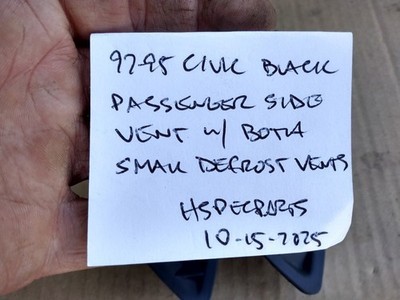 92-95 CIVIC BLACK
PASSENGER SIDE
VENT W/ BOTH
SMALL DEFROST VENTS
HSPECPARTS
10-15-2025